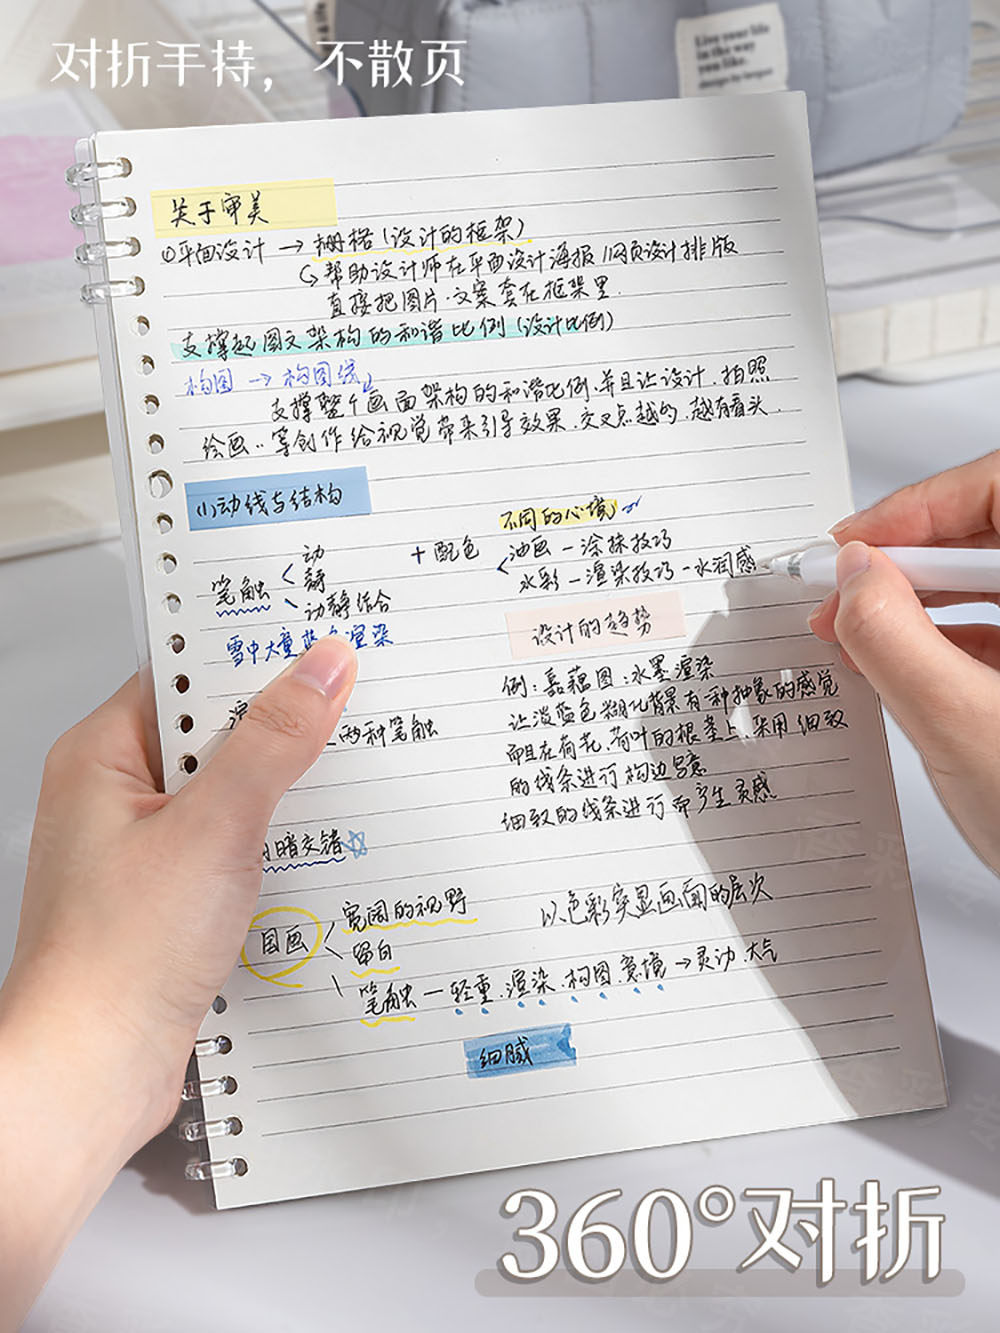 对折手持，不散页
Live your life
in the way
you like.
关于审美
①平面设计 → 栅格(设计的框架)
↳帮助设计师在平面设计海报/网页设计排版
直接把图片·文案套在框架里.
支撑起图文架构的和谐比例(设计比例)
构图 → 构图线
支撑整个画面架构的和谐比例.并且让设计.拍照
绘画..等创作给视觉带来引导效果.交叉点越多.越有看头.
(1)动线与结构
不同的心境
动
+ 配色
油画 — 涂抹技巧
笔触 < 静
水彩 — 渲染技巧 — 水润感
动静结合
雪中大童蓝色渲染
设计的趋势
例:嘉藕图:水墨渲染
两种笔触
让淡蓝色糊化背景有一种抽象的感觉
而且在荷花.荷叶的根茎上.采用细致
的线条进行构边写意
细致的线条进行而产生灵感
暗交错
宽阔的视野
以色彩突显画面的层次
国画 < 留白
笔触 — 轻重.渲染.构图.意境 → 灵动.大气
细腻
360°对折